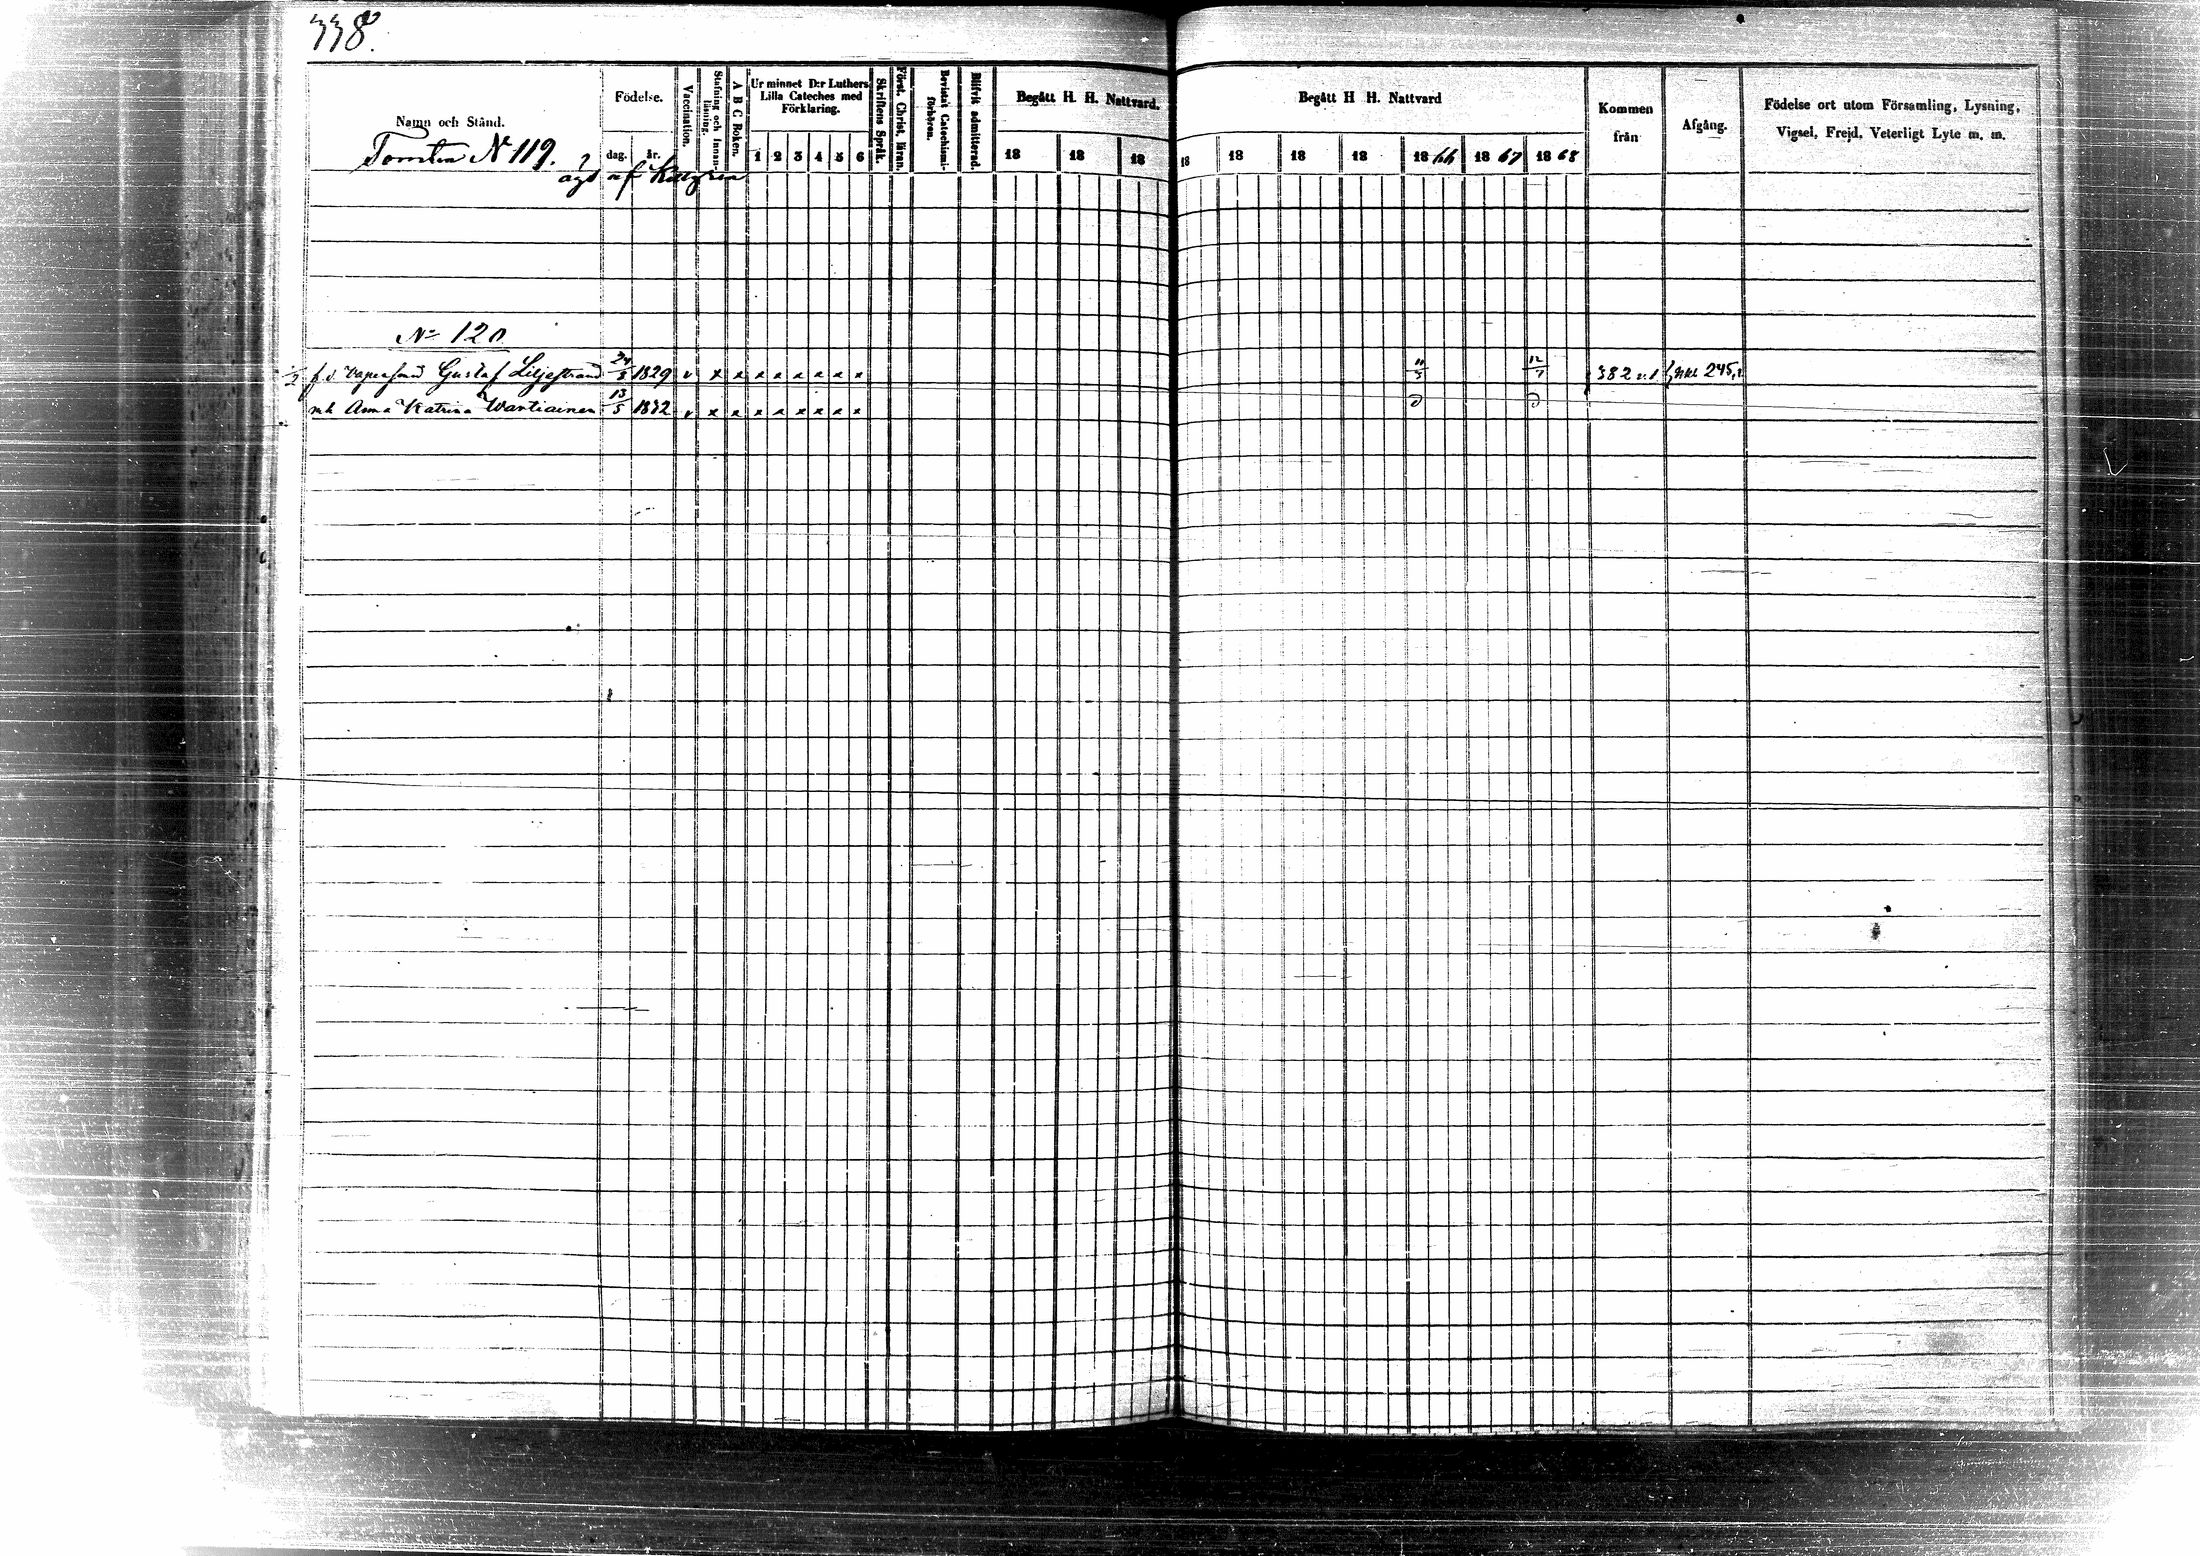 338.
Namn och Stånd.
Födelse.
dag. år.
Vaccination.
Stafning och Innanläsning.
A B C Boken.
Ur minnet D:r Luthers Lilla Cateches med Förklaring.
1 2 3 4 5 6
Skriftens Språk.
Först. Christ. läran.
Bevistat Catechismiförhören.
Blifvit admitterad.
Begått H. H. Nattvard.
18 18 18
Begått H H. Nattvard
18 18 18 18 1866 1867 1868
Kommen från
Afgång.
Födelse ort utom Församling, Lysning, Vigsel, Frejd, Veterligt Lyte m. m.
Tomten N 119.
af
N 120
f.d. Gustaf Liljestrand 24/8 1829 v x x x x x x x x 11/3 12/7 382 245
Anna Katrina Wartiainen 13/5 1832 v x x x x x x x x